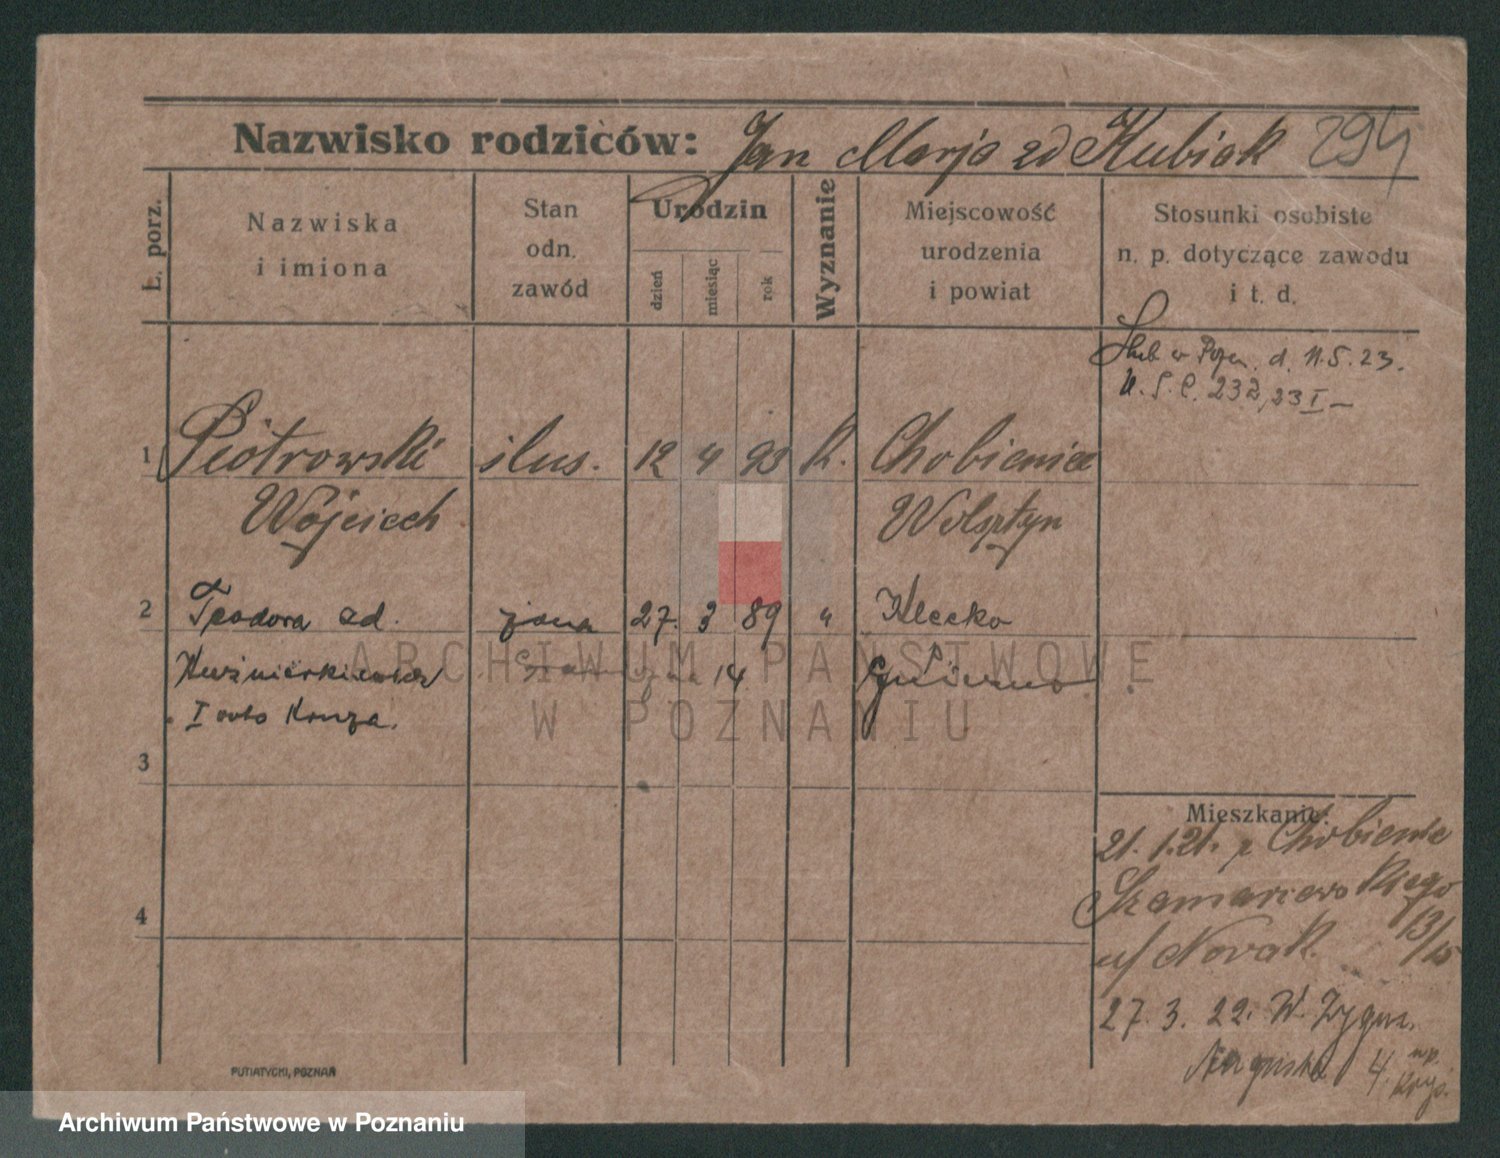 Nazwisko rodziców: Jan Marja zd Kubiak 294
Ł. porz.
Nazwiska
i imiona
Stan
odn.
zawód
Urodzin
dzień
miesiąc
rok
Wyznanie
Miejscowość
urodzenia
i powiat
Stosunki osobiste
n. p. dotyczące zawodu
i t. d.
Ślub w Pozn. d. 11.5.23.
U.S.C. 232/23 I
1 Piotrowski ślus. 12 4 93 k. Chobienice
Wojciech Wolsztyn
2 Teodora zd. żona 27. 3 89 " Klecko
Kuźnierkiewicz 14 Gniezno
I voto
3
4
Mieszkanie:
21. 1. 21. z Chobienic
Szamarzewskiego
13/15
u/ Nowak
27. 3. 22. W. Zygm.
Augusta 4
PUTIATYCKI, POZNAŃ
ARCHIWUM PAŃSTWOWE
W POZNANIU
Archiwum Państwowe w Poznaniu